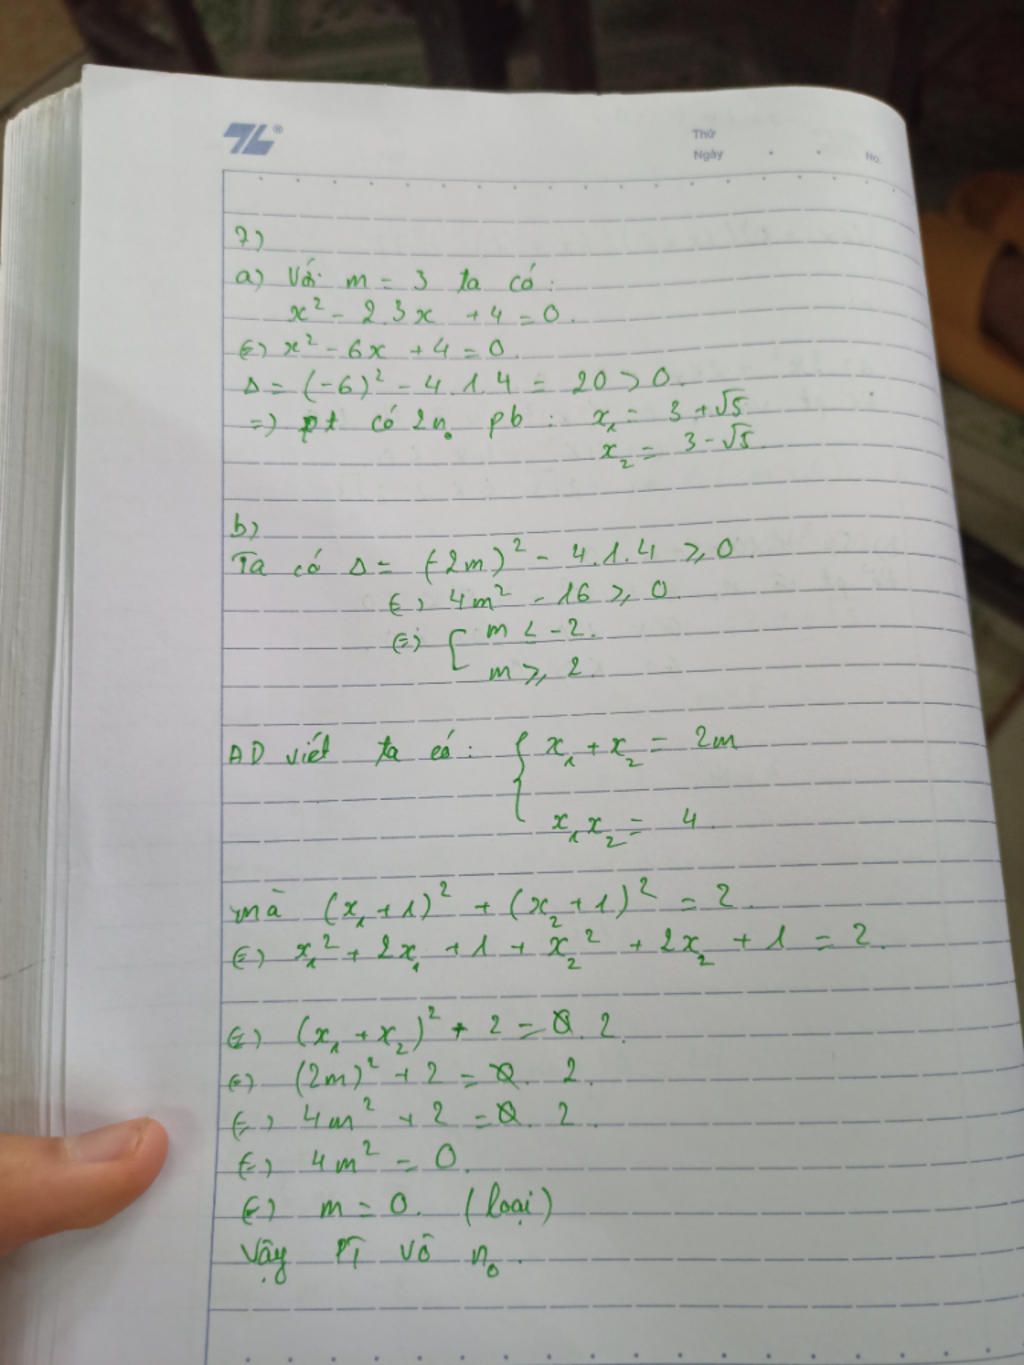 TL®
Thứ
Ngày No.
7)
a) Với m = 3 ta có:
x² - 2.3x + 4 = 0.
(=) x² - 6x + 4 = 0.
Δ = (-6)² - 4.1.4 = 20 > 0.
=) pt có 2n₀ pb : x₁ = 3 + √5
x₂ = 3 - √5.
b)
Ta có Δ = (-2m)² - 4.1.4 ⩾ 0.
(=) 4m² - 16 ⩾ 0.
(=) [ m < -2.
m ⩾ 2.
AD viét ta có: { x₁ + x₂ = 2m
x₁x₂ = 4.
mà (x₁ + 1)² + (x₂ + 1)² = 2.
(=) x₁² + 2x₁ + 1 + x₂² + 2x₂ + 1 = 2.
(=) (x₁ + x₂)² + 2 = 2.
(=) (2m)² + 2 = 2.
(=) 4m² + 2 = 2.
(=) 4m² = 0.
(=) m = 0. (loại)
Vậy PT vô n₀.